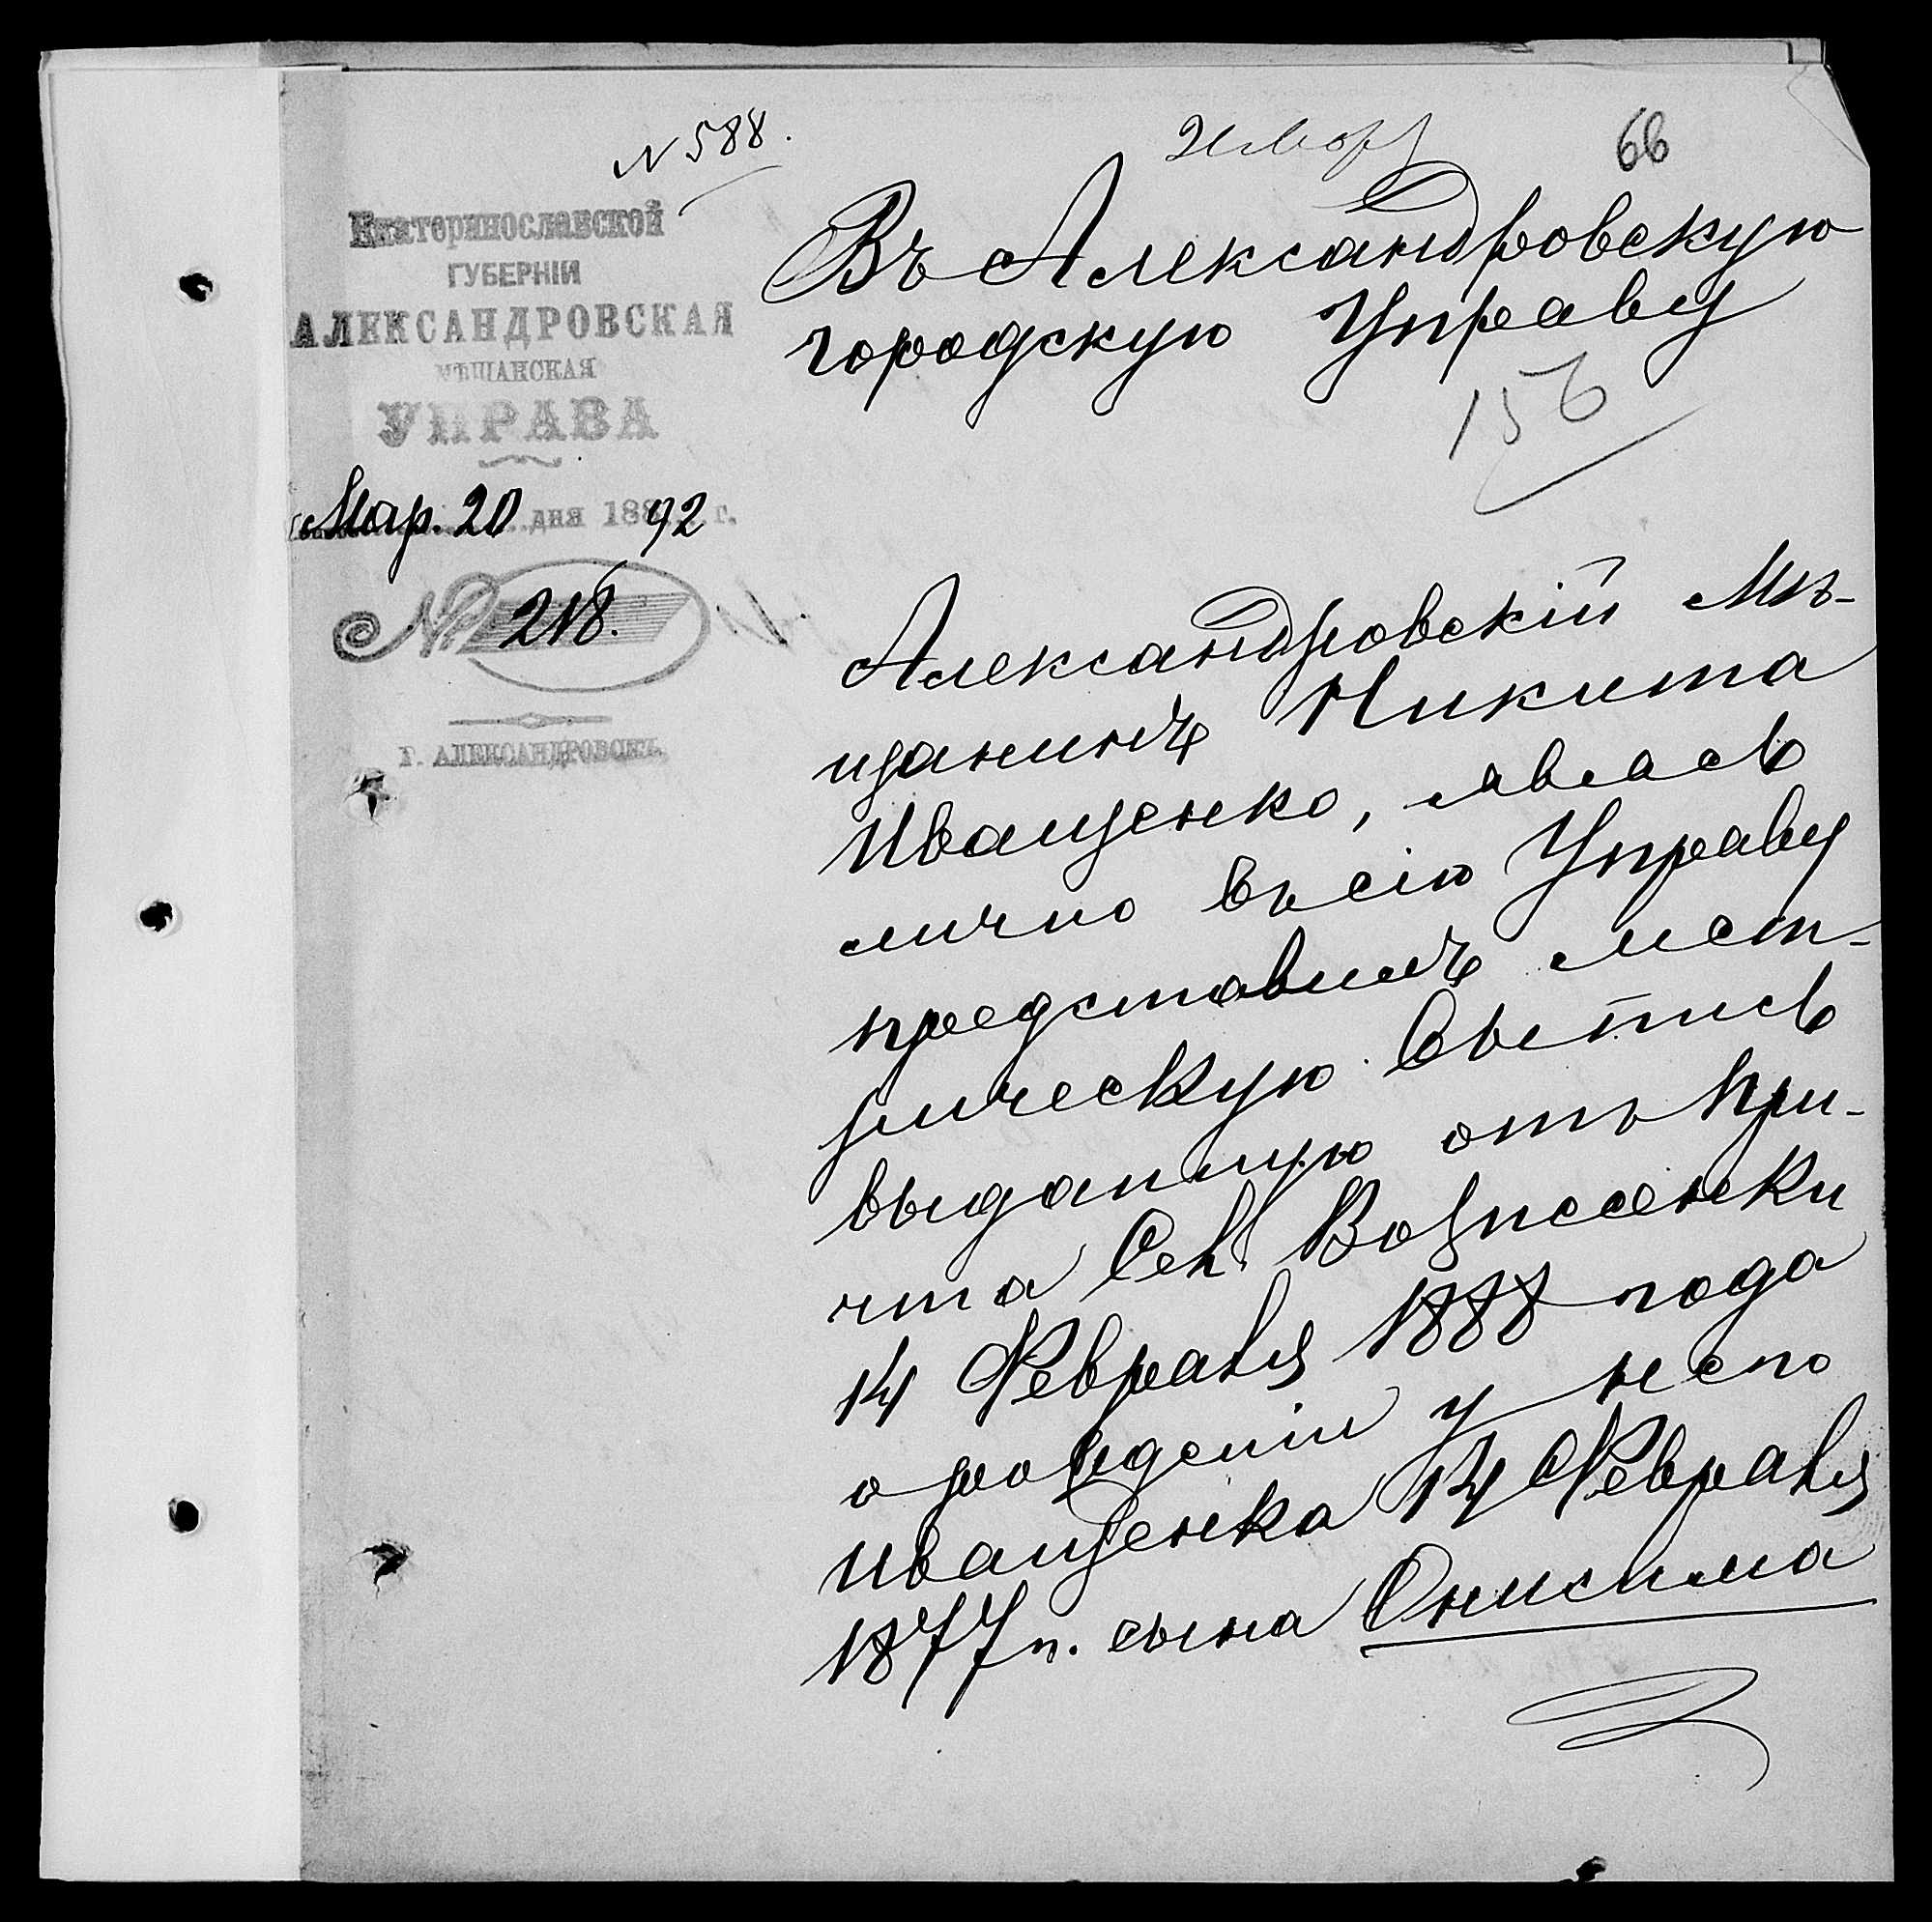 N 588.
66
Екатеринославской
ГУБЕРНІИ
АЛЕКСАНДРОВСКАЯ
МѢЩАНСКАЯ
УПРАВА
Мар. 20 дня 188 92 г.
№ 218.
Г. АЛЕКСАНДРОВСКЪ.
Въ Александровскую
городскую Управу
156
Александровскій мѣ-
щанинъ Никита
Иващенко, явясь
лично въ сію Управу
представилъ мет-
рическую выпись
выданную отъ при-
чта Сел. Вознесенки
14 Февраля 1888 года
о рожденіи у него
Иващенка 14 Февраля
1877 г. сына Онисима